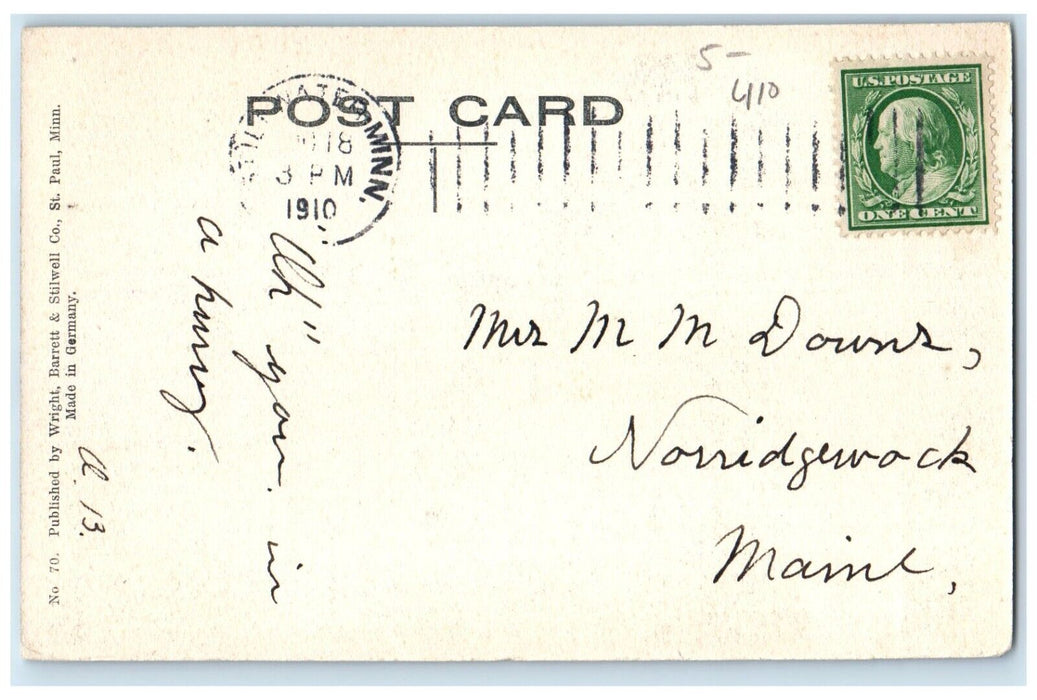 5-
410
POST CARD
U.S. POSTAGE
ONE CENT
STILLWATER, MINN.
18
3 PM
1910
Mrs M M Downs,
Norridgewock
Maine,
you. in
a hurry.
A. B.
No 70. Published by Wright, Barrett & Stilwell Co., St. Paul, Minn.
Made in Germany.